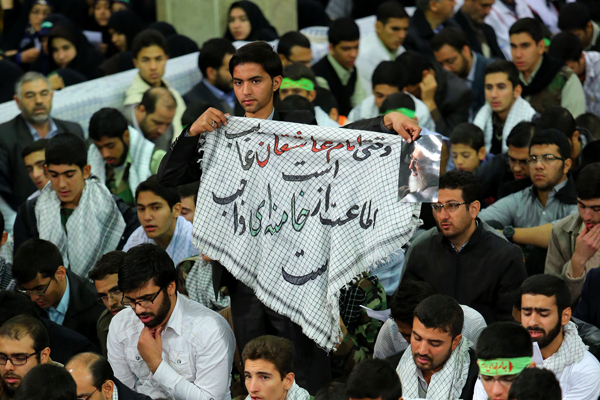 وقتی امام عاشقان غایب
است
اطاعت از خامنه‌ای واجب
است